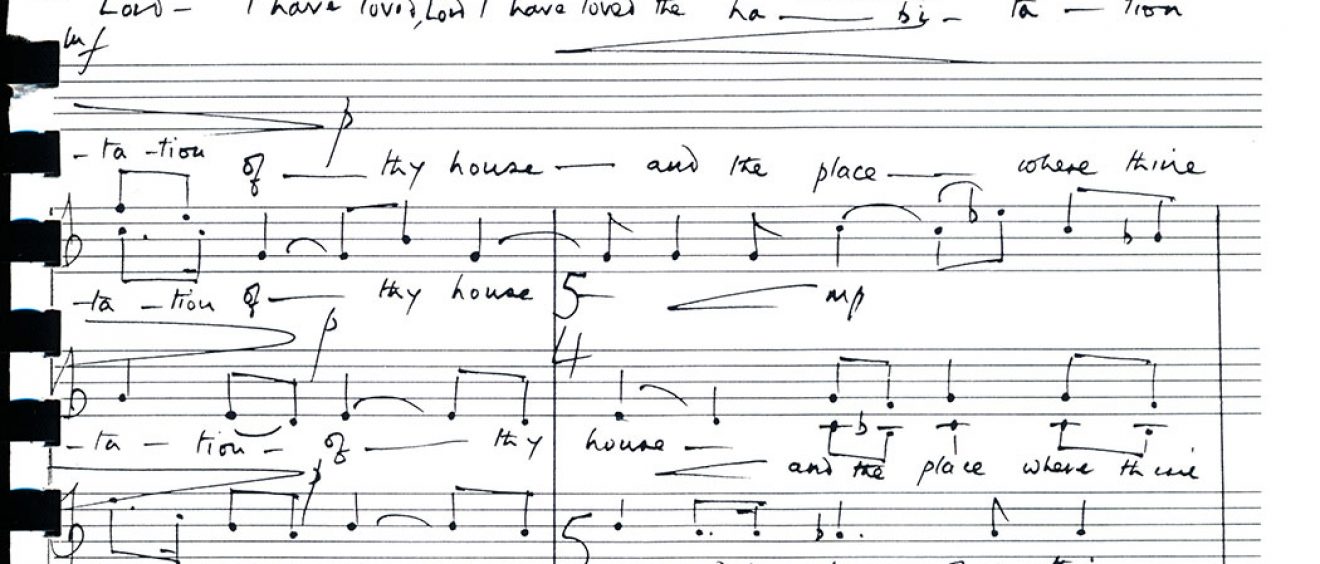 Lord – I have loved, Lord I have loved the ha — bi – ta – tion
mf
p
– ta – tion of — thy house — and the place — where thine
– ta – tion of — thy house 5 mp
p 4
– ta – tion – of — thy house –
and the place where thine
5